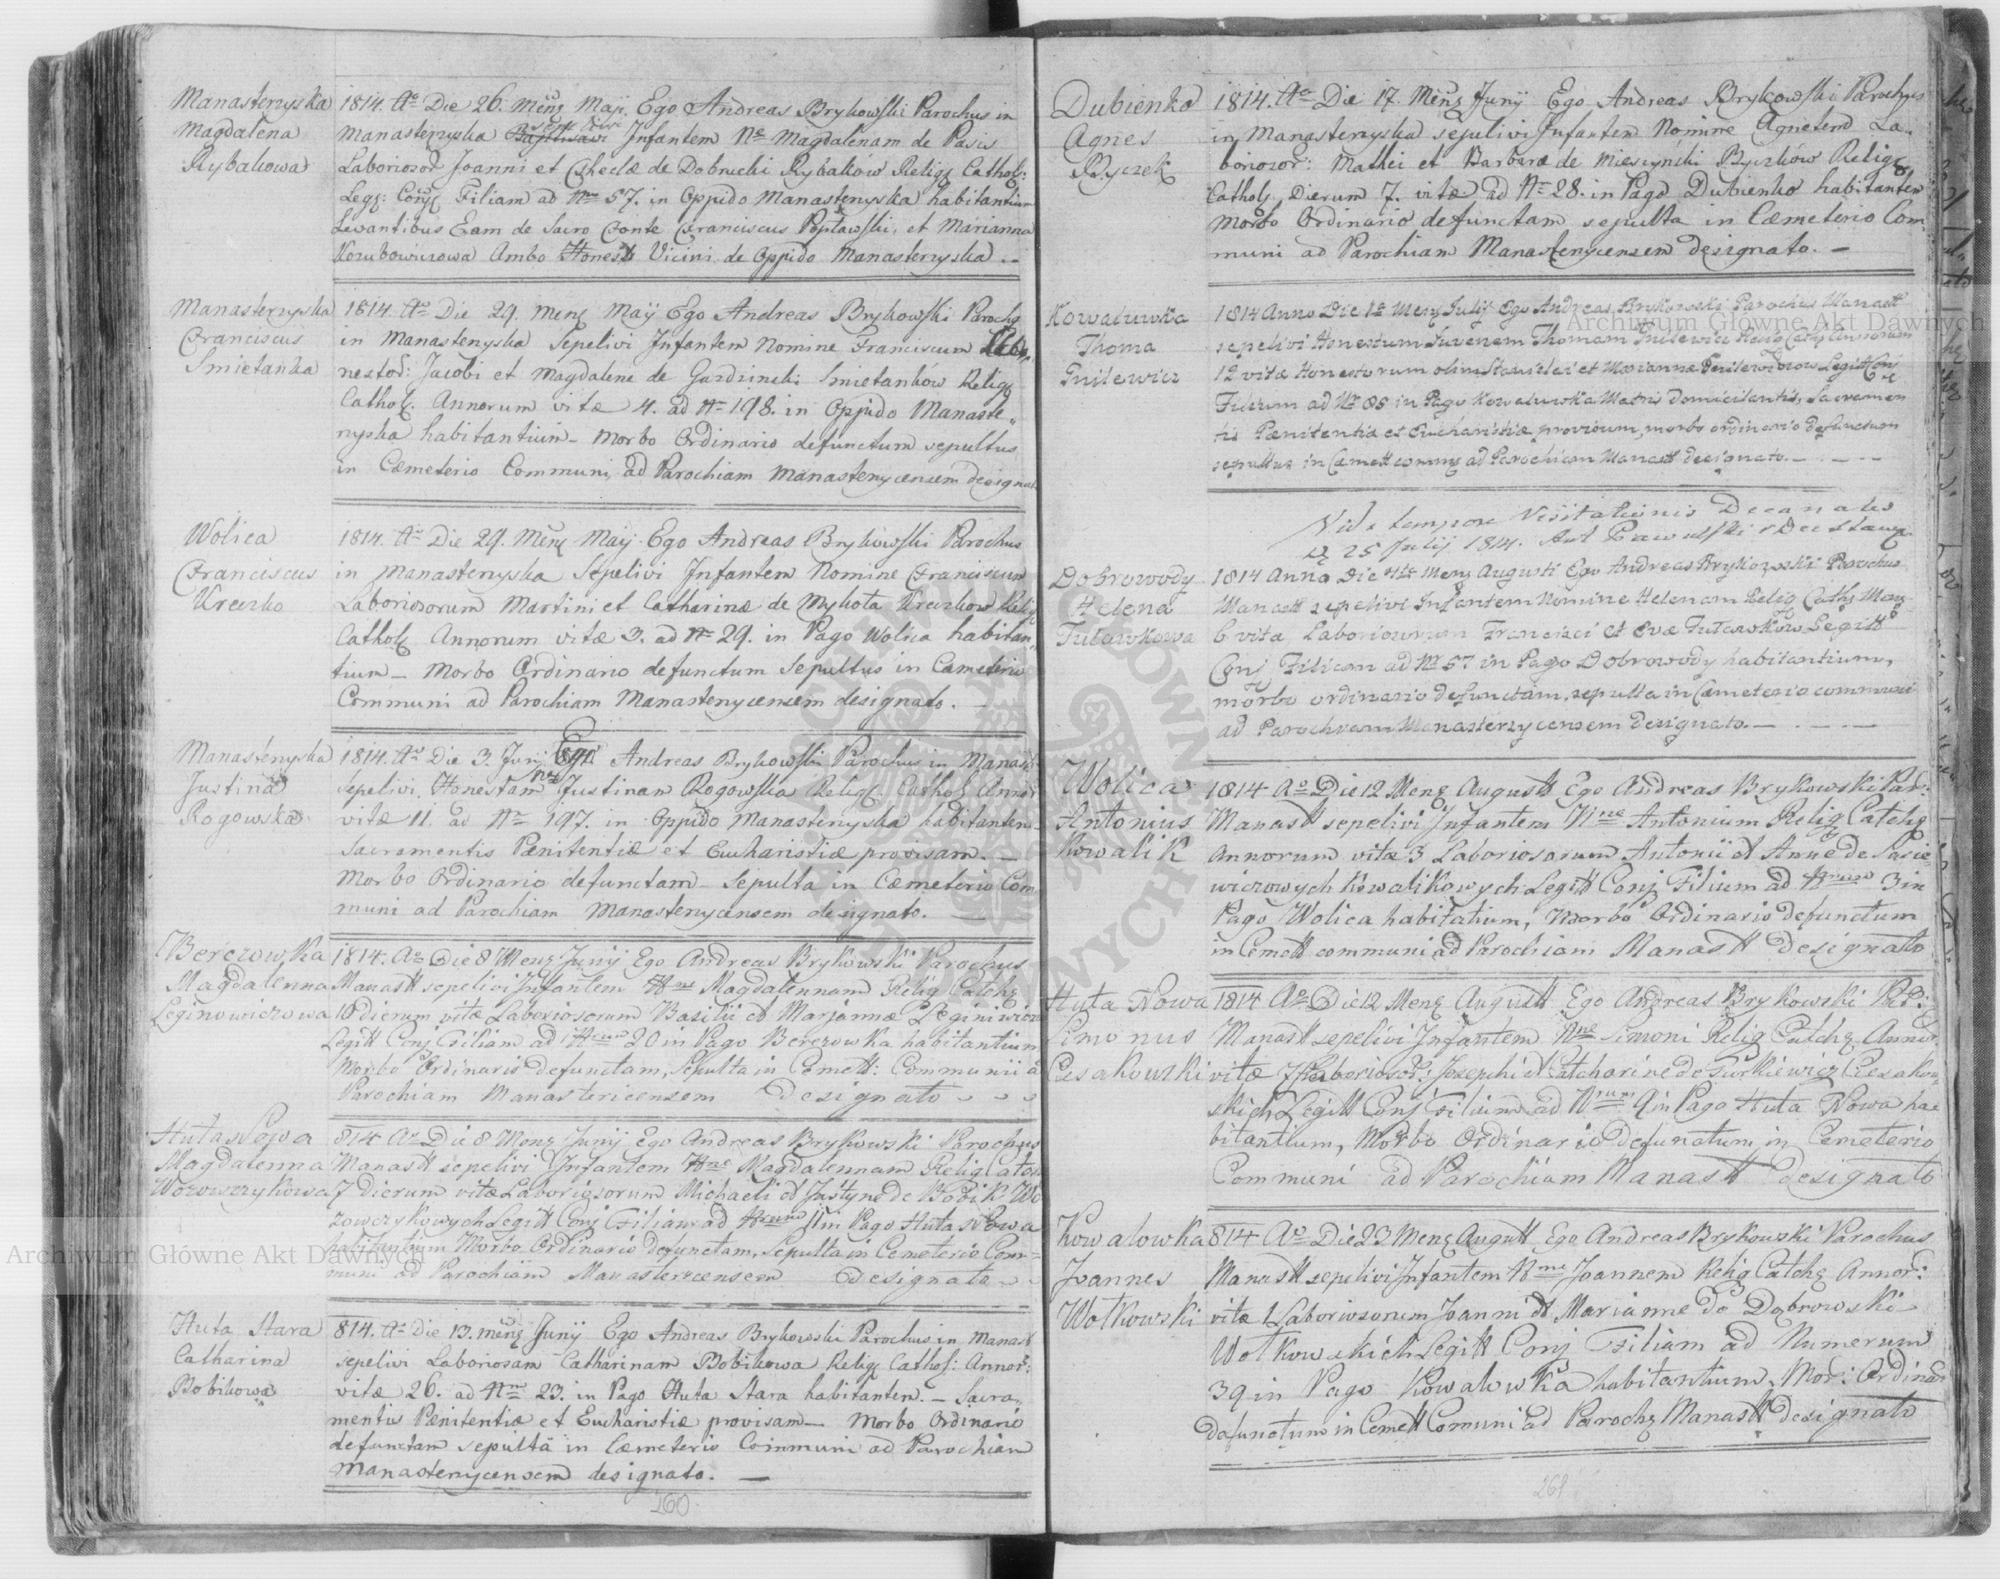 Manasterzyska
Magdalena
Rybakowa
1814. Ao Die 26. Mens Maji. Ego Andreas Brykowski Parochus in
Manasterzyska Sepelivi Infantem Ne Magdalenam de Pacis
Laboriosor Joanni et Theclæ de Dobrucki Rybaków Relig Cathol:
Legi: Conj Filiam ad Nm 57. in Oppido Manasterzyska habitantium
Levantibus Eam de Sacro Fonte Franciscus Popławski, et Marianna
Kozubowiczowa Ambo Honesti Vicini de Oppido Manasterzyska.
Manasterzyska
Franciscus
Smietanka
1814. Ao Die 29. Mens Maÿ Ego Andreas Brykowski Paroch
in Manasterzyska Sepelivi Infantem Nomine Franciscum
nestor: Jacobi et Magdalene de Gardzinski Smietanków Relig
Cathol. Annorum vitæ 4. ad No 198. in Oppido Manaste„
rzyska habitantium – Morbo Ordinario defunctum sepultus
in Cæmeterio Communi, ad Parochiam Manasterzycensem designat
Wolica
Franciscus
Kreczko
1814. Ao Die 29. Mens Maÿ. Ego Andreas Brykowski Parochus
in Manasterzyska Sepelivi Infantem Nomine Franciscum
Laboriosorum Martini et Catharinæ de Mykota Kreczkow Relig
Cathol Annorum vitæ 3. ad No 29. in Pago Wolica habitan„
tium – Morbo Ordinario defunctum Sepultus in Cæmeterio
Communi ad Parochiam Manasterzycensem designato. –
Manasterzyska
Justina
Rogowska
1814. Ao Die 3. Junÿ Ego Andreas Brykowski Parochus in Manast
sepelivi Honestam ne Justinam Rogowska Relig. Cathol Annor
vitæ 11. ad No 197. in Oppido Manasterzyska habitantem
Sacramentis Pænitentiæ et Eucharistiæ provisam. –
Morbo Ordinario defunctam – Sepulta in Cæmeterio Com„
muni ad Parochiam Manasterzycensem designato. –
Berezowka
Magdalenna
Leginowiczowa
1814. Ao Die 8 Mens Junij Ego Andreas Brykowski Parochus
Manastt sepelivi Infantem Nne Magdalennam Relig Cathg
10 Dierum vitæ Laboriosorum Basilii et Marjannæ Leginiwiczo
Legitt Conj Filiam ad Nrum 20 in Pago Berezowka habitantium
Morbo Ordinario defunctam, Sepulta in Cemett: Communii a
Parochiam Manastericensem Designato
Huta Nowa
Magdalenna
Wozowczykowa
814 Ao Die 8 Mens Junij Ego Andreas Brykowski Parochus
Manastt sepelivi Infantem Nne Magdalennam Relig Catho
7 Dierum vitæ Laboriosorum Michaeli et Justyne de Bobik Wo
zowczykowych Legitt Conj Filiam ad Nrum 11 in Pago Huta Nowa
habitantium Morbo Ordinario defunctam, Sepulta in Cemeterio Com=
muni ad Parochiam Manasterzcensem designato
Huta Stara
Catharina
Bobikowa
814. Ao Die 13. Mens Junÿ Ego Andreas Brykowski Parochus in Manast
sepelivi Laboriosam Catharinam Bobikowa Relig Cathol: Annor:
vitæ 26. ad Nrm 23. in Pago Huta Stara habitantem. – Sacra„
mentis Pænitentiæ et Eucharistiæ provisam – Morbo Ordinario
defunctam sepulta in Cæmeterio Communi ad Parochiam
Manasterzycensem designato. –
260
Dubienko
Agnes
Byczek
1814. Ao Die 17. Mens Junÿ Ego Andreas Brykowski Parochus
in Manasterzyska sepelivi Infantem Nomine Agnetem La„
boriosor: Mathei et Barbaræ de Miesczyński Byczków Relig
Cathol. Dierum 7. vitæ ad No 28. in Pago Dubienko habitantem
Morbo Ordinario defunctam sepulta in Cæmeterio Com„
muni ad Parochiam Manasterzycensem designato. –
Kowaluwka
Thoma
Gnilewicz
1814 Anno Die 1a Mens Julij Ego Andreas Brykowski Parochus Manastt
sepelivi Honestum Juvenem Thomam Gnilewicz Relig Cath Annorum
12 vitæ Honestorum olim Stanislai et Mariannæ Gnilewiczow Legitt Conj
Filium ad Nr 85 in Pago Kowaluwka Matris Domicilantis, Sacramen
tis Pænitentiæ et Eucharistiæ provisum, morbo ordinario defunctum
sepultus in Cæmett commg ad Parochiam Manastt designato. – – –
Vidi tempore Visitationis Decanalis
D 25 Julij 1814.
Dobrowody
Helena
Tuławkowa
1814 Anno Die 4ta Mens Augusti Ego Andreas Brykowski Parochus
Manastt sepelivi Infantem Nomine Helenam Relig Cath Mens
6 vita Laboriosorum Francisci et Evæ Tuławkow Legitt
Conj Filiam ad Nr 57 in Pago Dobrowody habitantium,
morbo ordinario defunctam, sepulta in Cæmeterio communi
ad Parochiam Manasterzycensem Designato. – – –
Wolica
Antonius
Kowalik
1814 Ao Die 12 Mens Augustt Ego Andreas Brykowski Par:
Manastt sepelivi Infantem Nne Antonium Relig Cathg
Annorum vitæ 3 Laboriosorum Antonii et Anne de Sasie=
wiczowych Kowalikowych Legitt Conj Filium ad Nrum 3 in
Pago Wolica habitatium, Morbo Ordinario defunctum
in Cemett communi ad Parochiam Manastt Designato
Huta Nowa
Simonus
Cesakowski
1814 Ao Die 12 Mens Augustt Ego Andreas Brykowski Par:
Manastt sepelivi Infantem Nne Simoni Relig Cathg Annor
vitæ 7 Laboriosor: Josephi et Catcharine de Turkiewicz Cesakow„
skich Legitt Conj Filium ad Nrum 9 in Pago Huta Nowa ha=
bitantium, Morbo Ordinario defunctum in Cemeterio
Communi ad Parochiam Manastt designato
Kowalowka
Joannes
Wołkowski
814 Ao Die 23 Mens Augustt Ego Andreas Brykowski Parochus
Manastt sepelivi Infantem Nme Joannem Relig Cathg Annor:
vitæ 1 Laboriosorum Joanni et Marianne de Dąbrowski
Wołkowskich Legitt Conj Filium ad Numerum
39 in Pago Kowalowka habitantium, Mor: Ordinar
defunctum in Cemett Comuni ad Parochg Manastt Designato
261
Archiwum Główne Akt Dawnych
Archiwum Główne Akt Dawnych